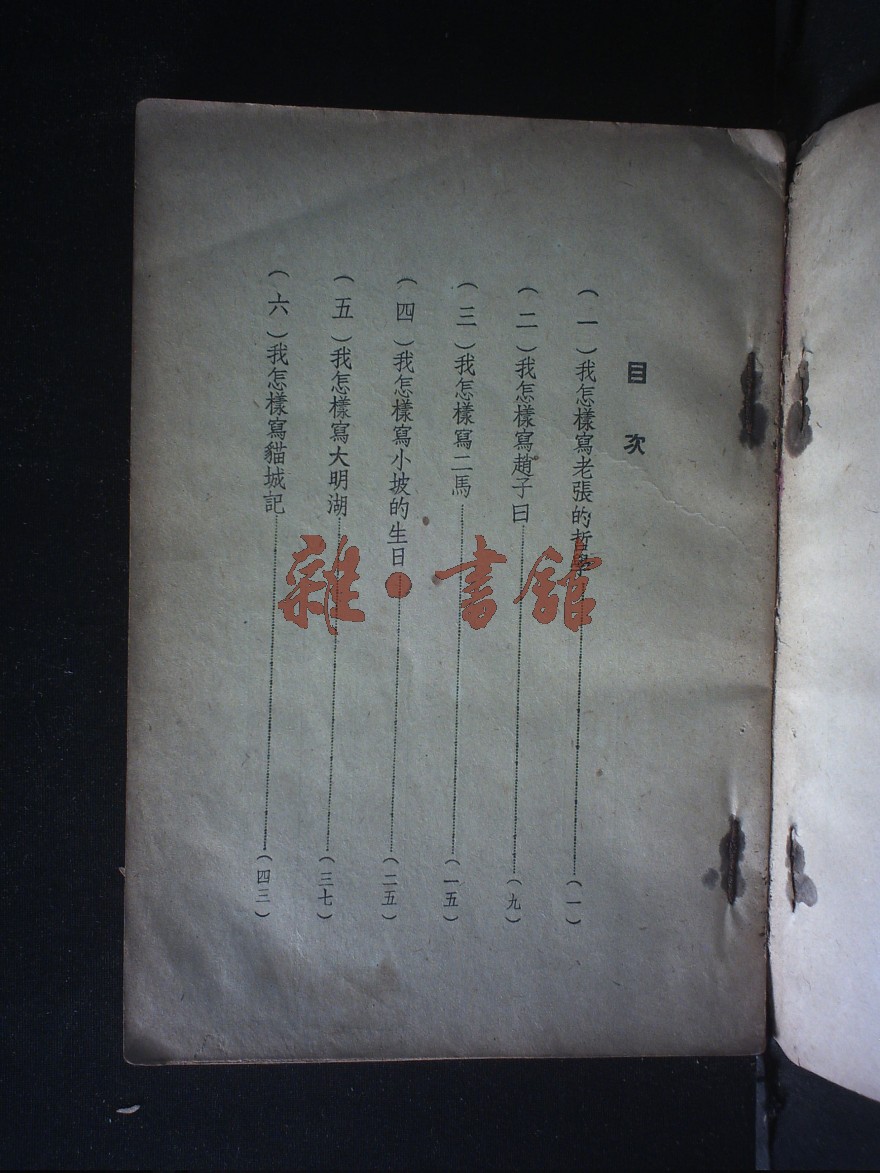 目次
(一)我怎樣寫老張的哲學……(一)
(二)我怎樣寫趙子曰……(九)
(三)我怎樣寫二馬……(一五)
(四)我怎樣寫小坡的生日……(二五)
(五)我怎樣寫大明湖……(三七)
(六)我怎樣寫貓城記……(四三)
雜·書館